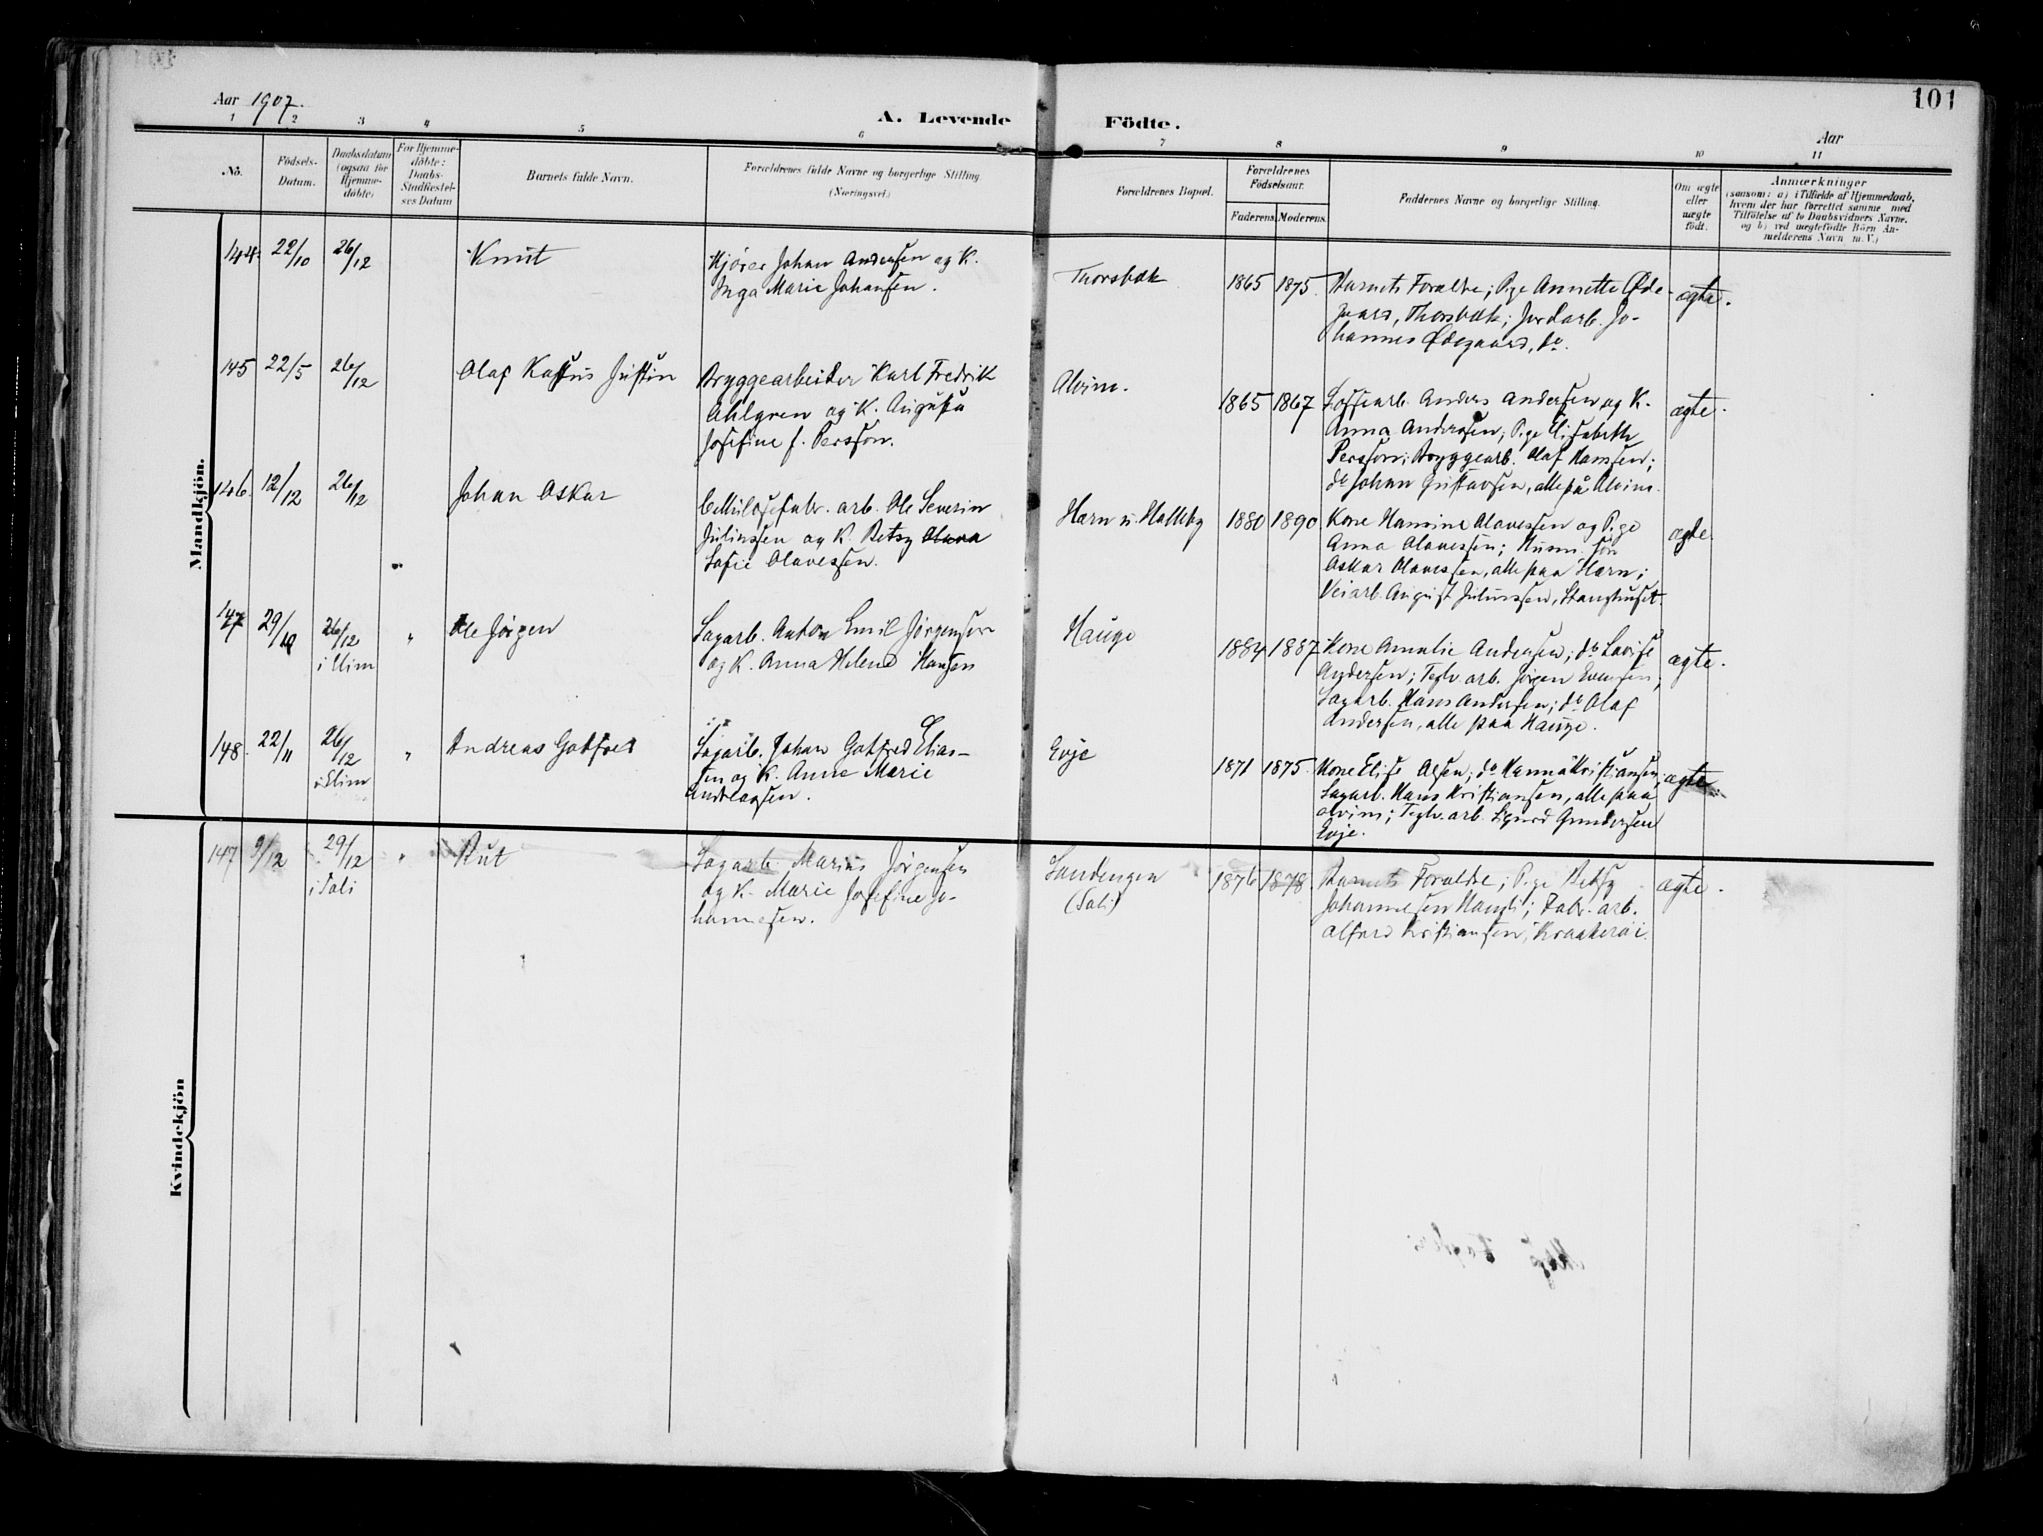 101
Aar 1907.
A. Levende Födte.
Aar
1 2 3 4 5 6 7 8 9 10 11
No.
Födsels-
Datum.
Daabsdatum
(ogsaa for
Hjemme-
döbte)
For Hjemme-
döbte:
Daabs-
Stadfæstel-
ses Datum
Barnets fulde Navn.
Forældrenes fulde Navne og borgerlige Stilling
(Næringsvei.)
Forældrenes Bopæl.
Forældrenes
Födselsaar.
Faderens. Moderens.
Faddernes Navne og borgerlige Stilling.
Om ægte
eller
uægte
födt.
Anmærkninger
(saasom: a) i Tilfælde af Hjemmedaab,
hvem der har forrettet samme med
Tilföielse af to Daabsvidners Navne,
og b) ved uægtefödte Börn An-
melderens Navn m. V.)
Mandkjön.
144. 22/10 26/12 Knut
Kjører Johan Andersen og K.
Inga Marie Johansen.
Thorsbæk 1865 1875.
Barnets Forældre; Pige Annette Øde-
gaard, Thorsbæk; Jordarb. Jo-
hannes Ødegaard, do.
ægte.
145 22/5 26/12 Olaf Justin
Bryggearbeider Karl Fredrik
Ahlgren og K. Augusta
Josefine f. Persson.
Alvim. 1865 1867
Lossearb. Anders Andersen og K.
Anna Andersen; Pige Elisabeth
Persson; Bryggearb. Olaf Hansen;
do Johan Gustavsen, alle på Alvim.
ægte.
146. 12/12 26/12 Johan Oskar
Cellulosefabr. arb. Ole Severin
Juliussen og K. Betsy Olava
Sofie Olavessen.
Hærn u. Hafslund 1880 1890
Kone Hansine Olavessen og Pige
Anna Olavessen; Husm. søn
Oskar Olavessen, alle paa Hærn;
Veiarb. August Juliussen, Stanghuset.
ægte.
147 29/10 26/12 i Elim " Ole Jørgen
Sagarb. Anton Emil Jørgensen
og K. Anna Helene Hansen
Hauge 1884 1887
Kone Amalie Andersen; do Lovise
Andersen; Teglv. arb. Jørgen Evensen;
Sagarb. Hans Andersen; do Olaf
Andersen, alle paa Hauge.
ægte.
148. 22/11 26/12 i Elim " Andreas Gotfred
Sagarb. Johan Gotfred Elias-
sen og K. Anne Marie
Andreassen.
Evje 1871 1875.
Kone Elise Olsen; do Hanna Kristiansen;
Sagarb. Hans Kristiansen, alle paa
Alvim; Teglv. arb. Sigurd Gundersen
Evje.
ægte.
Kvindekjön
147 9/12 29/12 i Tali " Rut
Sagarb. Marius Jørgensen
og K. Marie Josefine Jo-
hannesen.
Sandengen
(Tali)
1876 1878.
Barnets Forældre; Pige Betsy
Johannesen Haugli; Fabr. arb.
Alfred Kristiansen, Kraakerøi.
ægte.